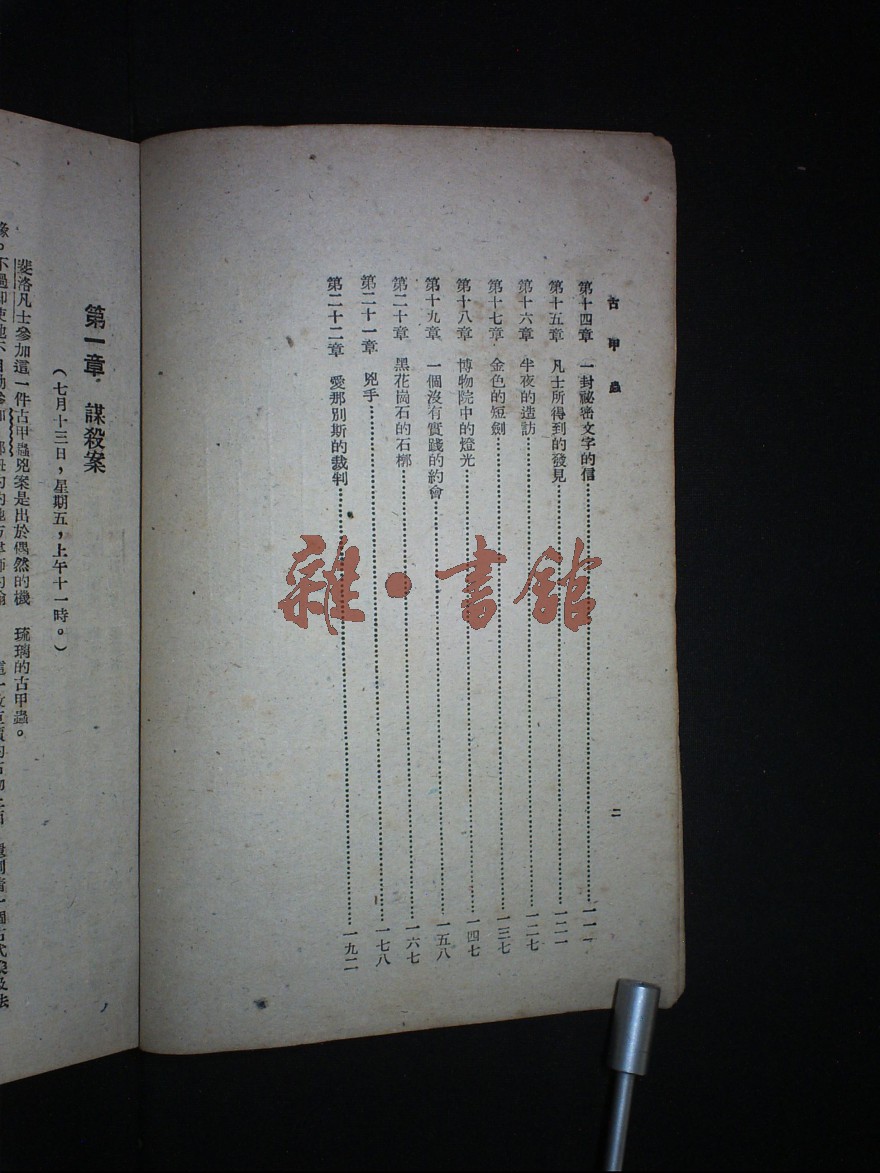 古甲蟲
二
第十四章 一封祕密文字的信……一一一
第十五章 凡士所得到的發見……一二一
第十六章 半夜的造訪……一二七
第十七章 金色的短劍……一三七
第十八章 博物院中的燈光……一四七
第十九章 一個沒有實踐的約會……一五八
第二十章 黑花崗石的石槨……一六七
第二十一章 兇手……一七八
第二十二章 愛那別斯的裁判……一九二
雜·書館
第一章 謀殺案
(七月十三日,星期五,上午十一時。)
斐洛凡士參加這一件古甲蟲兇案是出於偶然的機
琉璃的古甲蟲。